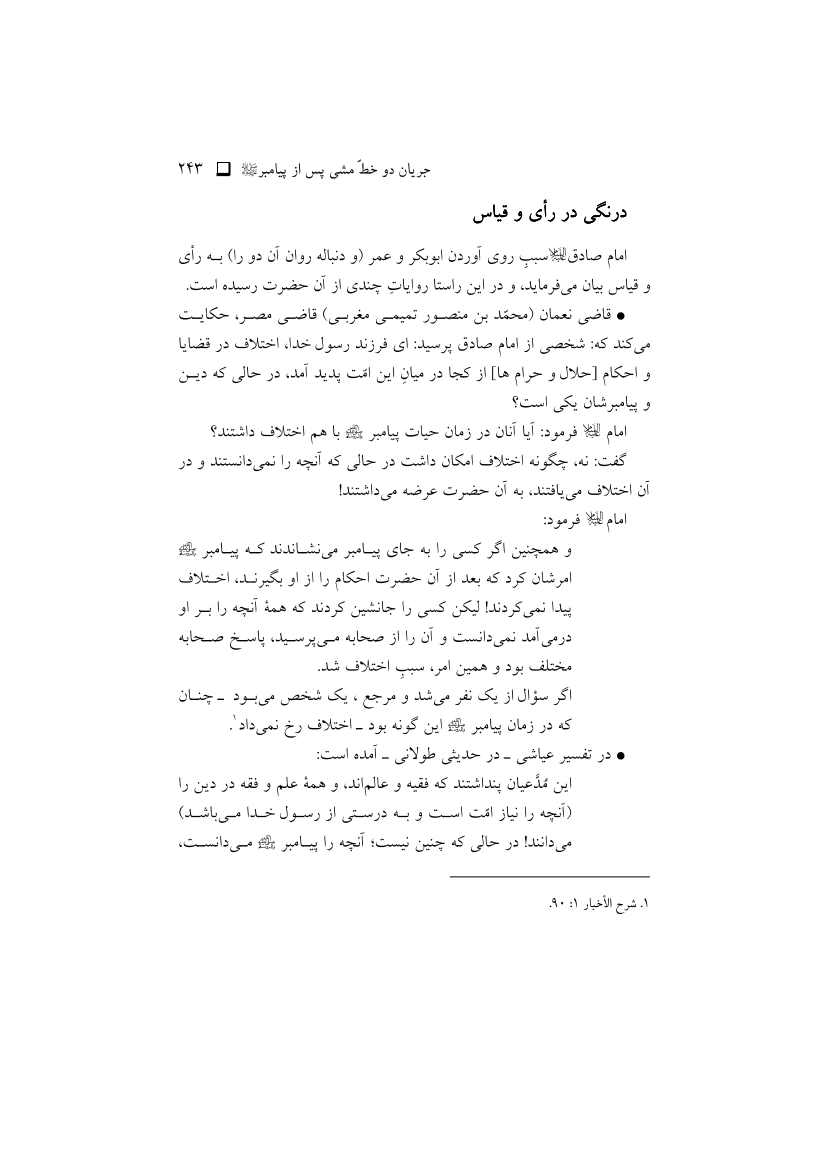 جریان دو خطّ مشی پس از پیامبرﷺ ❑ ۲۴۳
درنگی در رأی و قیاس
امام صادق‌علیه‌السلام سببِ روی آوردن ابوبکر و عمر (و دنباله روان آن دو را) بـه رأی
و قیاس بیان می‌فرماید، و در این راستا روایاتِ چندی از آن حضرت رسیده است.
● قاضی نعمان (محمّد بن منصـور تمیمـی مغربـی) قاضـی مصـر، حکایـت
می‌کند که: شخصی از امام صادق پرسید: ای فرزند رسول خدا، اختلاف در قضایا
و احکام [حلال و حرام ها] از کجا در میانِ این امّت پدید آمد، در حالی که دیـن
و پیامبرشان یکی است؟
امام علیه‌السلام فرمود: آیا آنان در زمان حیات پیامبر ﷺ با هم اختلاف داشتند؟
گفت: نه، چگونه اختلاف امکان داشت در حالی که آنچه را نمی‌دانستند و در
آن اختلاف می‌یافتند، به آن حضرت عرضه می‌داشتند!
امام علیه‌السلام فرمود:
و همچنین اگر کسی را به جای پیـامبر می‌نشـاندند کـه پیـامبر ﷺ
امرشان کرد که بعد از آن حضرت احکام را از او بگیرنـد، اخـتلاف
پیدا نمی‌کردند! لیکن کسی را جانشین کردند که همهٔ آنچه را بـر او
درمی‌آمد نمی‌دانست و آن را از صحابه مـی‌پرسـید، پاسـخ صـحابه
مختلف بود و همین امر، سببِ اختلاف شد.
اگر سؤال از یک نفر می‌شد و مرجع ، یک شخص می‌بـود ـ چنـان
که در زمان پیامبر ﷺ این گونه بود ـ اختلاف رخ نمی‌داد¹.
● در تفسیر عیاشی ـ در حدیثی طولانی ـ آمده است:
این مُدَّعیان پنداشتند که فقیه و عالم‌اند، و همهٔ علم و فقه در دین را
(آنچه را نیاز امّت اسـت و بـه درسـتی از رسـول خـدا مـی‌باشـد)
می‌دانند! در حالی که چنین نیست؛ آنچه را پیـامبر ﷺ مـی‌دانسـت،
۱. شرح الأخبار ۱: ۹۰.